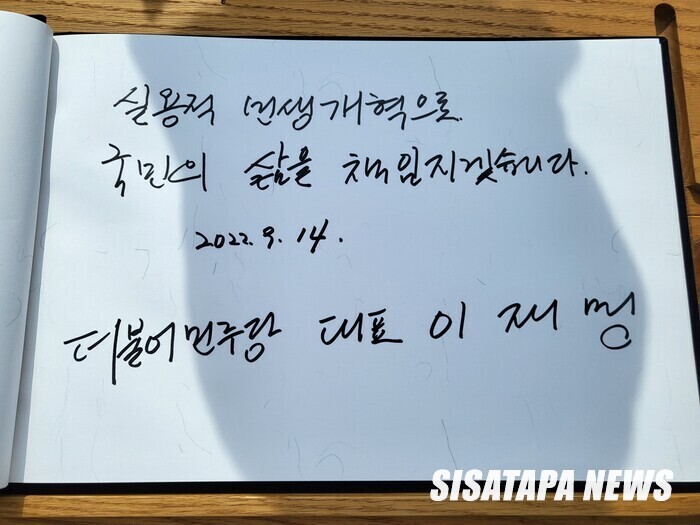 실용적 민생개혁으로
국민의 삶을 책임지겠습니다.
2022. 9. 14.
더불어민주당 대표 이재명
SISATAPA NEWS